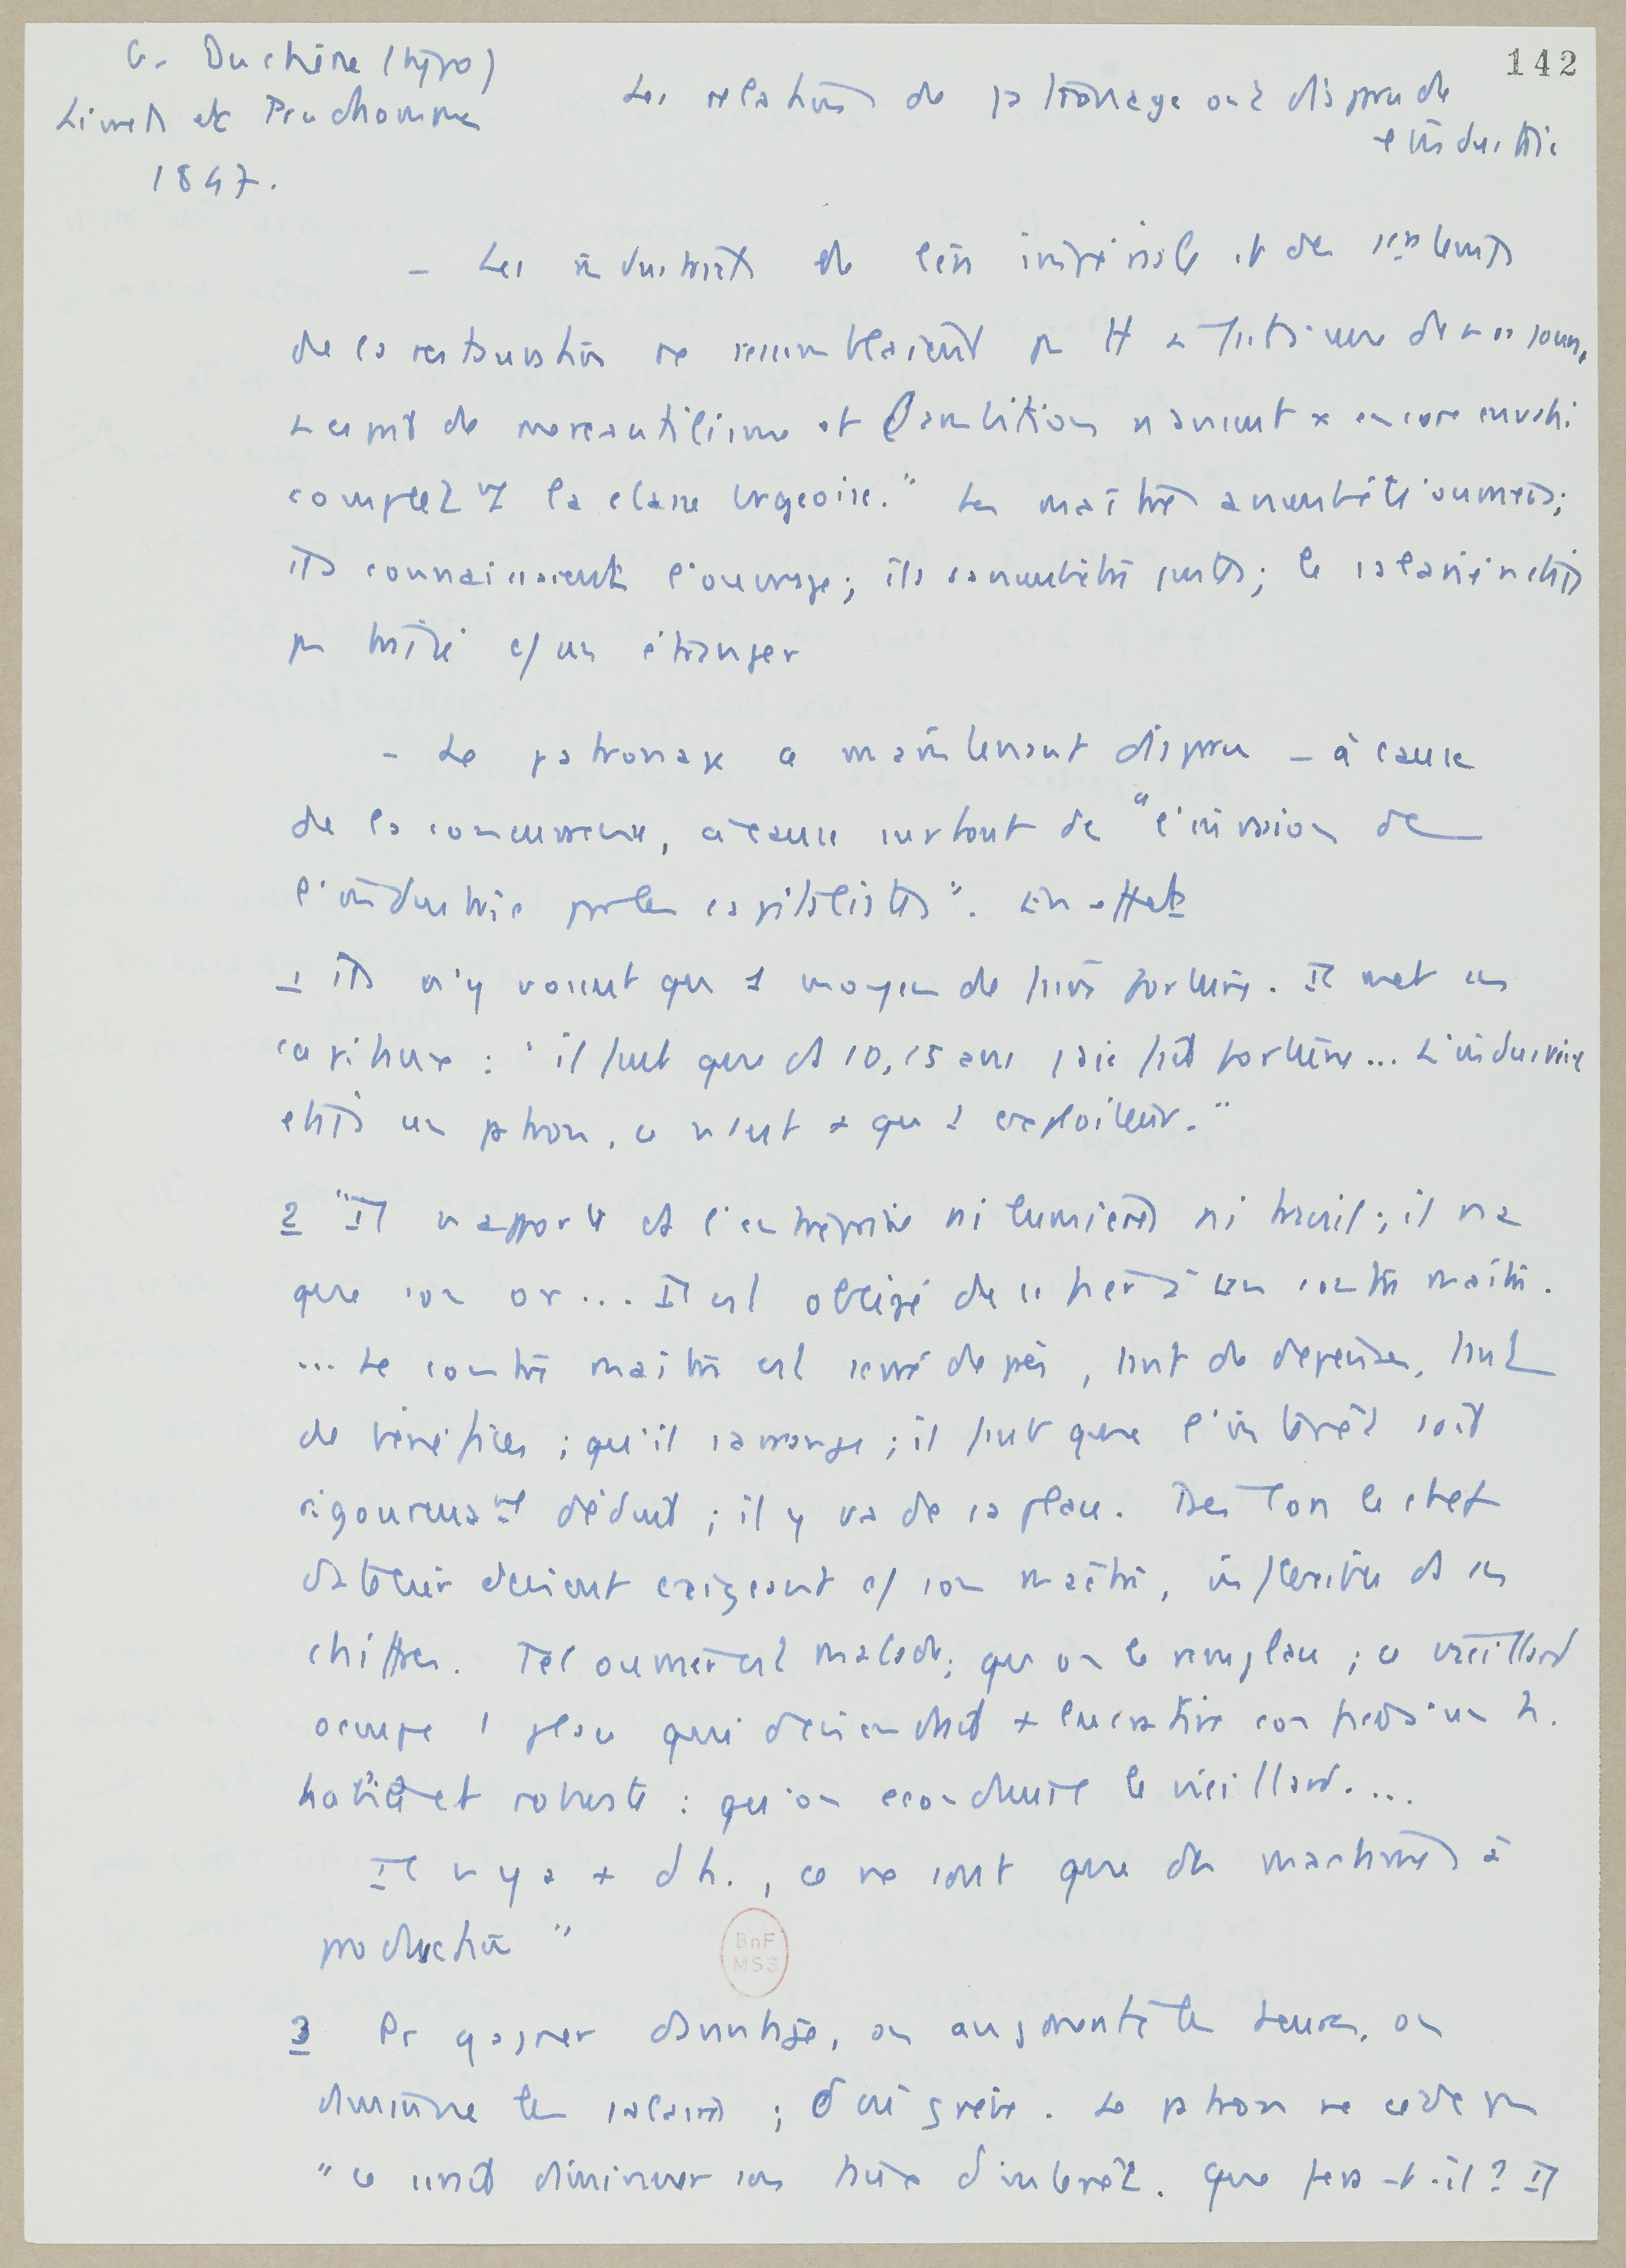 142
G. Duchêne (typo)
Livrets et Prudhommes
1847.
Les relations de patronage ont disparu de
l'industrie
- Les industriels de l'ère impériale et des
de la restauration ne ressemblaient pas à ceux d
L'esprit de mercantilisme et d'ambition n'avaient + encore envahi
completᵗ la classe bourgeoise." Les maîtres avaient été ouvriers;
ils connaissaient l'ouvrage; ils ; le salarié n'était
pas traité c/ un étranger
- Le patronage a maintenant disparu - à cause
de la concurrence, à cause surtout de "l'invasion de
l'industrie par les capitalistes". En effet
1 ils n'y voient qu'1 moyen de faire fortune. Il met ses
capitaux : "il faut que ds 10, 15 ans j'aie fait fortune... L'industriel
était un patron, ce n'est + qu'1 exploiteur."
2 "Il n'apporte ds l'entreprise ni lumières ni travail; il n'a
que son or... Il est obligé de se fier à un contre maître.
... Le contre maître est serré de près, tant de dépenses, tant
de bénéfices; qu'il s'arrange; il faut que l'intérêt soit
rigoureusᵗ déduit; il y va de sa place. Dès lors le chef
d'atelier devient exigeant c/ son maître, inflexible ds ses
chiffres. Tel ouvrier est malade; qu'on le remplace; ce vieillard
occupe 1 place qui deviendrait + lucrative confiée à un h.
habile et robuste : qu'on éconduise le vieillard....
Il n'y a + d'h., ce ne sont que des machines à
production"
3 Pr gagner davantage, on augmente les heures, on
diminue les salaires; d'où grève. Le patron ne cède pas
"ce serait diminuer son taux d'intérêt. Que fera-t-il? Il
BnF
MSS